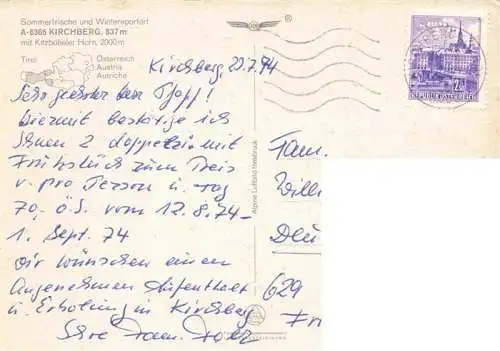 Sommerfrische und Wintersportort
A-6365 KIRCHBERG, 837 m
mit Kitzbüheler Horn, 2000 m
Tirol
Österreich
Austria
Autriche
®
Kirchberg, 20.7.74
Sehr geehrter Herr Hopf!
Hiermit bestätige ich
Ihnen 2 Doppelzi. mit
Frühstück zum Preis
v. pro Person u. tag
70,- ö.S. vom 12.8.74 -
1. Sept. 74
Wir wünschen einen
Angenehmen Aufenthalt
u. Erholung in Kirchberg
Ihre Fam.
Alpine Luftbild Innsbruck
Fam.
Will
Deu
629
REPUBLIK ÖSTERREICH